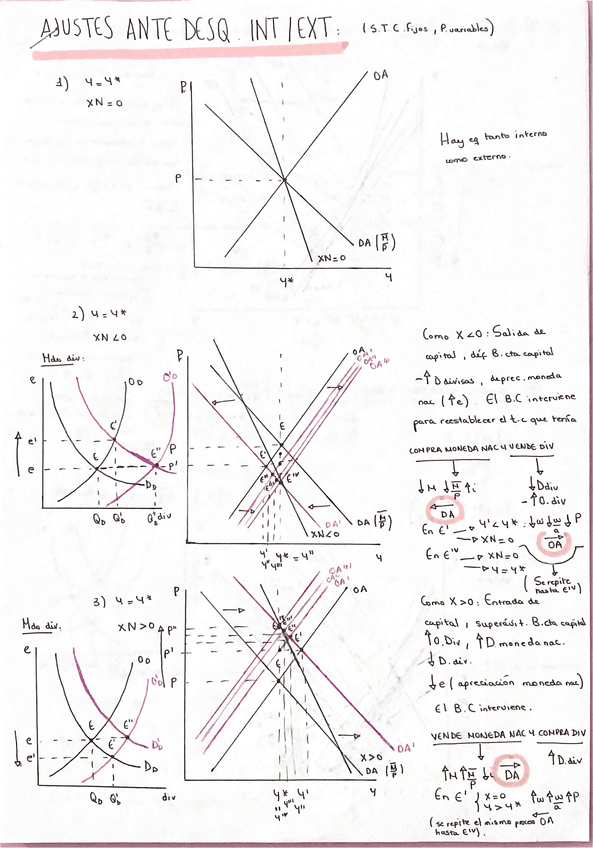 AJUSTES ANTE DESQ. INT/EXT: (S.T.C. Fijos, P. variables)
1) Y = Y*
XN = 0
P
OA
Hay eq tanto interno
como externo.
P
DA (M̅/P)
XN = 0
Y*
Y
2) Y = Y*
XN < 0
Mdo div:
e
OD
O'D
e'
E'
e
E
E''
DD
QD Q'D Q''D div
P
OA
OA'
OA''
OA'''
E
P
P'
E'
E''
E'''
E'''
DA (M̅/P)
DA'
XN < 0
Y' Y* = Y''
Y'' Y'''
Y
Como X < 0: Salida de
capital, déf B. cta capital
- ↑ D divisas, deprec. moneda
nac (↑e). El B.C interviene
para reestablecer el t.c que tenía
COMPRA MONEDA NAC Y VENDE DIV
↓M ↓M̅/P ↑i
↓D div
- ↑O. div
DA
En E' → Y' < Y*
→ XN = 0
: ↓w ↓w/a ↓P
OA
En E^IV → XN = 0
→ Y = Y*
(Se repite
hasta E^IV)
3) Y = Y*
XN > 0
Mdo div:
e
OD
O'D
E
E''
e
e'
E'
D'D
DD
QD Q'D div
P
P''
P'
P
OA'''
OA''
OA'
OA
E'''
E''
E'
E
X > 0
DA'
DA (M̅/P)
Y* Y'
Y'' Y'''
Y
Como X > 0: Entrada de
capital, superávit. B. cta capital
↑O. Div, ↑D moneda nac.
↓D. div.
↓e (apreciación moneda nac)
El B.C interviene.
VENDE MONEDA NAC Y COMPRA DIV
↑M ↑M̅/P ↓i DA
↑D. div
En E' { X = 0
Y > Y* ↑w ↑w/a ↑P
(se repite el mismo proces OA
hasta E^IV).